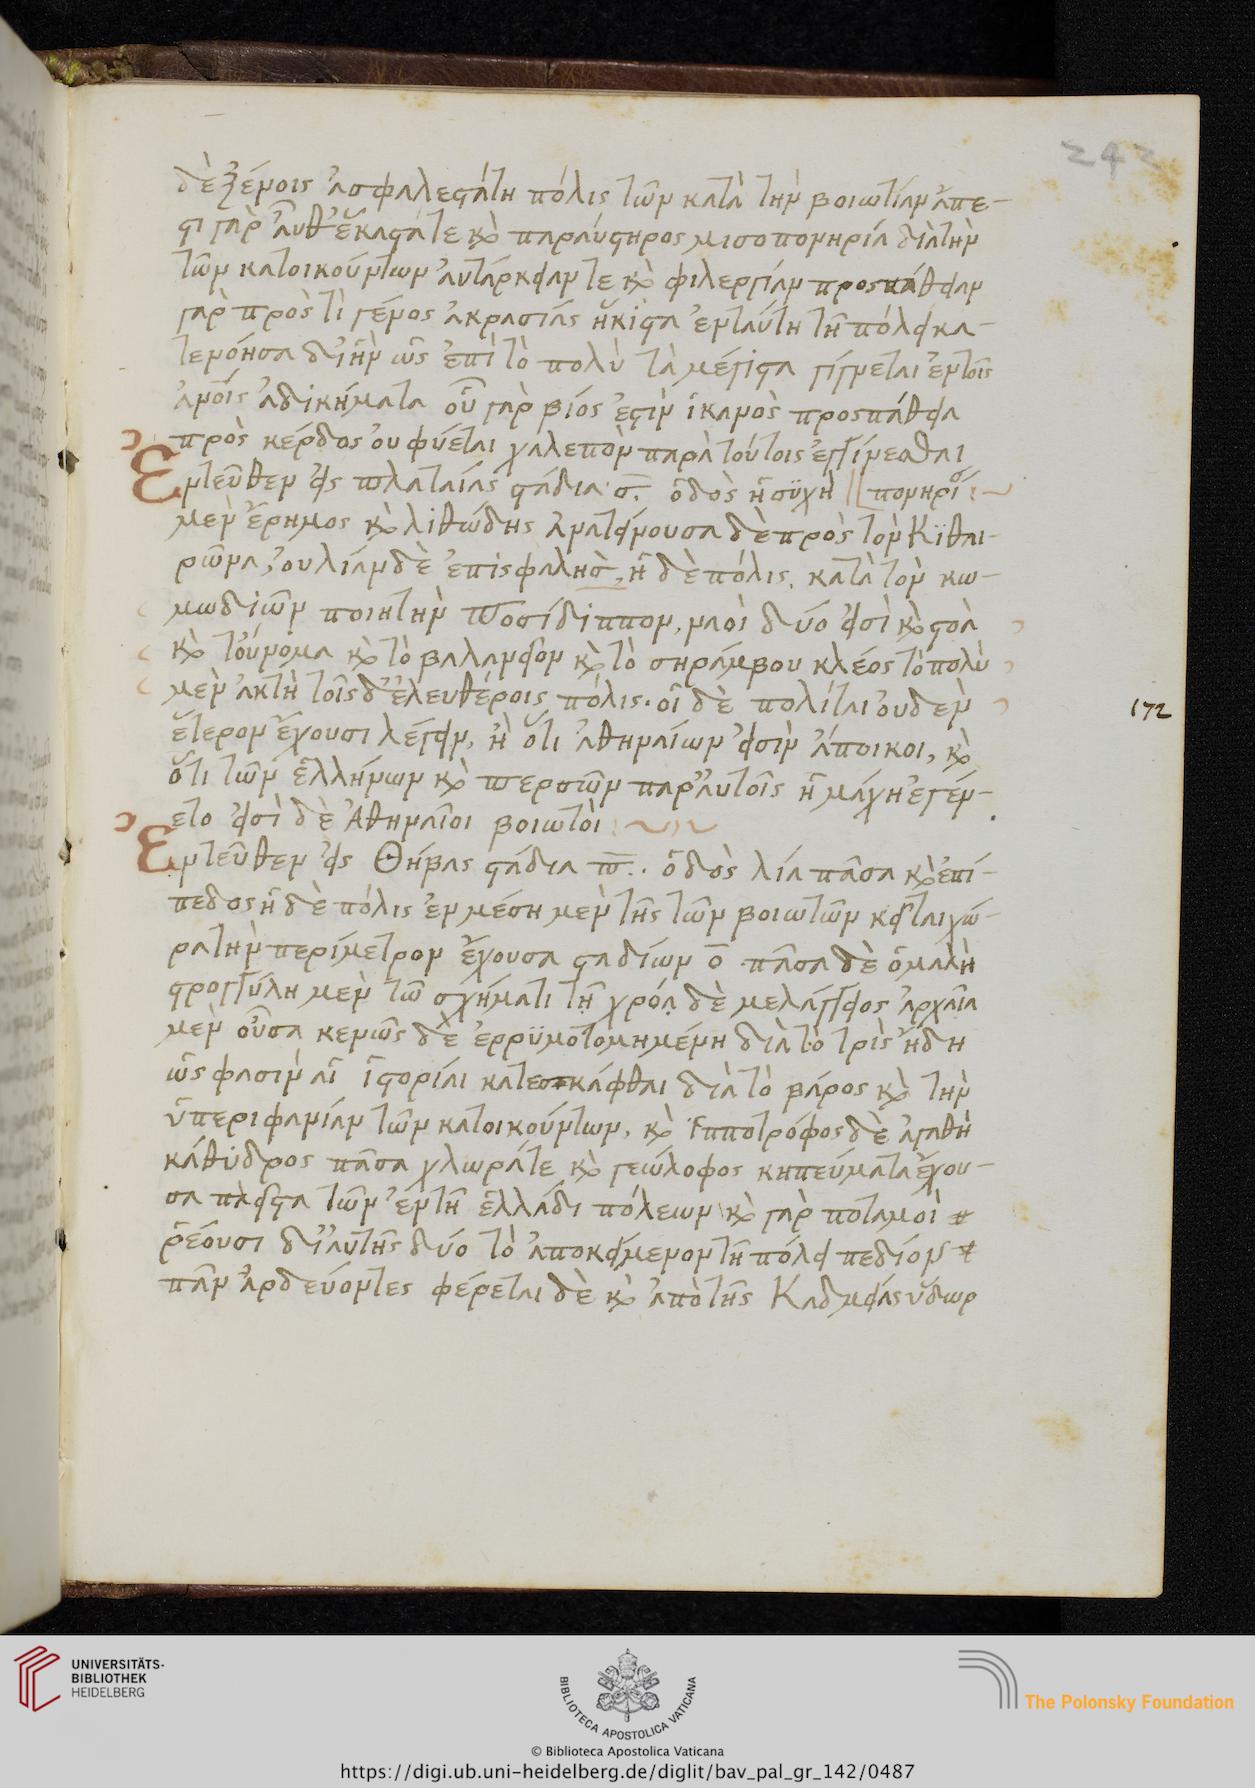 242
δὲ ξένοις ἀσφαλεστάτη πόλις τῶν κατὰ τὴν βοιωτίαν ἄπε-
στι γὰρ αὐθέκαστά τε καὶ παραύστηρος μισοπονηρία διὰ τὴν
τῶν κατοικούντων αὐτάρκειάν τε καὶ φιλεργίαν προσπάθειαν
γὰρ πρὸς τὶ γένος ἀκρασίας ἥκιστα ἐν ταύτη τῆ πόλει κα-
τενόησα δι' ἣν ὡς ἐπὶ τὸ πολὺ τὰ μέγιστα γίγνεται ἐν τοῖς
ἀνοις ἀδικήματα οὗ γὰρ βίος ἐστὶν ἱκανὸς προσπάθεια
πρὸς κέρδος οὐ φύεται χαλεπὸν παρὰ τούτοις ἐγγίνεσθαι
Ἐντεῦθεν εἰς πλαταιάς στάδια σ̅. ὁδὸς ἡσϋχῆ || πονηρί
μὲν ἔρημος καὶ λιθώδης ἀνατείνουσα δὲ πρὸς τὸν Κϊθαι-
ρῶνα, οὐ λίαν δὲ ἐπισφαλησ, ἡ δὲ πόλις. κατὰ τὸν κω-
μωδιῶν ποιητὴν Ποσίδιππον, ναοὶ δύο εἰσὶ καὶ στοὰ
καὶ τοὔνομα καὶ τὸ βαλανεῖον καὶ τὸ σηράμβου κλέος τὸ πολὺ
μὲν ἀκτὴ τοῖς δ' ἐλευθέροις πόλις. οἱ δὲ πολίται οὐδεν
ἕτερον ἔχουσι λέγειν, ἢ ὅτι ἀθηναίων εἰσὶν ἄποικοι, καὶ
172
ὅτι τῶν ἑλλήνων καὶ περσῶν παρ' αὐτοῖς ἡ μάχη ἐγέν-
ετο εἰσὶ δὲ Ἀθηναῖοι βοιωτοὶ
Ἐντεῦθεν εἰς Θήβας στάδια π̅. ὁδὸς λία πᾶσα καὶ ἐπί-
πεδος ἡ δὲ πόλις ἐν μέση μὲν τῆς τῶν βοιωτῶν κεῖται χώ-
ρα τὴν περίμετρον ἔχουσα σταδίων ο̅ πᾶσα δὲ ὁμαλὴ
στρογγύλη μὲν τῶ σχήματι τῆ χρόα δὲ μελάγγειος ἀρχαῖα
μὲν οὖσα κενῶς δὲ ἐρρϋμοτομημένη διὰ τὸ τρὶς ἤδη
ὥς φασιν αἱ ἱστορίαι κατεσκάφθαι διὰ τὸ βάρος καὶ τὴν
ὑπεριφανίαν τῶν κατοικούντων, καὶ ἱπποτρόφος δὲ ἀγαθὴ
κάθυδρος πᾶσα χλωρά τε καὶ γεώλοφος κηπεύματα ἔχου-
σα πλεῖστα τῶν ἐν τῆ ἑλλάδι πόλεων καὶ γὰρ ποταμοὶ
ῥέουσι δι' αὐτῆς δύο τὸ ἀποκείμενον τῆ πόλει πεδίον
πᾶν ἀρδεύοντες φέρεται δὲ καὶ ἀπὸ τῆς Καδμείας ὕδωρ
UNIVERSITÄTS-
BIBLIOTHEK
HEIDELBERG
BIBLIOTECA APOSTOLICA VATICANA
The Polonsky Foundation
© Biblioteca Apostolica Vaticana
https://digi.ub.uni-heidelberg.de/diglit/bav_pal_gr_142/0487